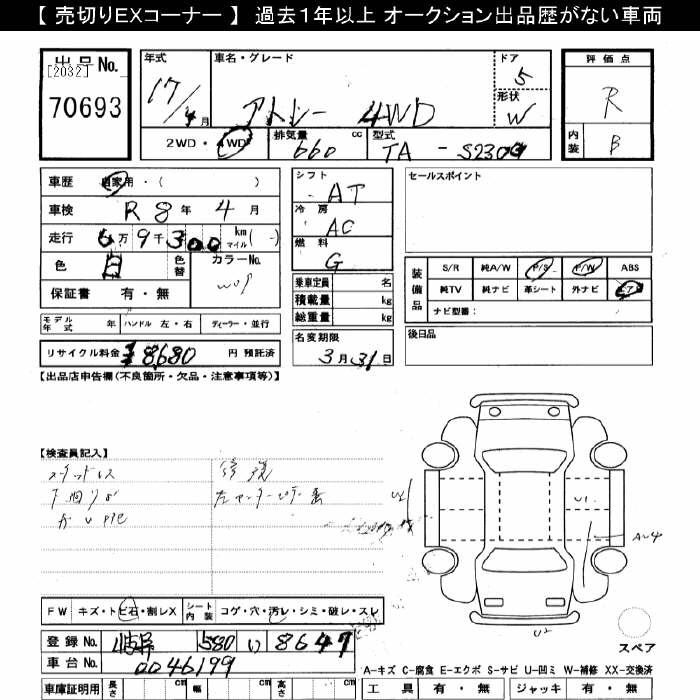 【 売切りEXコーナー 】 過去1年以上 オークション出品歴がない車両
出品No.
[2032]
70693
年式
17/4月
車名・グレード
アトレー 4WD
ドア
5
形状
W
2WD・4WD
排気量
660 cc
型式
TA - S230G
評価点
R
内装
B
車歴 自家用・( )
車検 R 8 年 4 月
走行 6万 9千 300 km マイル( - )
色 白 色替 カラーNo. W09
保証書 有・無
シフト
AT
冷房
AC
燃料
G
乗車定員 名
積載量 kg
総重量 kg
セールスポイント
装備品
S/R 純A/W P/S P/W ABS
純TV 純ナビ 革シート 外ナビ エアB
ナビ型番:
モデル年式 年 ハンドル 左・右 ディーラー・並行
リサイクル料金 ¥8680 円 預託済
名変期限
3月31日
後日品
【出品店申告欄(不良箇所・欠品・注意事項等)】
【検査員記入】
修復
U1
A-4
U2
FW キズ・トビ石・割レX シート内装 コゲ・穴・汚レ・シミ・破レ・スレ
登録No. 岐阜 580 い 8647
車台No. 0046199
スペア
A-キズ C-腐食 E-エクボ S-サビ U-凹ミ W-補修 XX-交換済
車庫証明用 長さ cm 幅 cm 高さ cm
工具 有・無 ジャッキ 有・無